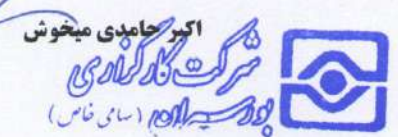 اکبر حامدی میخوش
شرکت کارگزاری
بورسیران (سامی خاص)